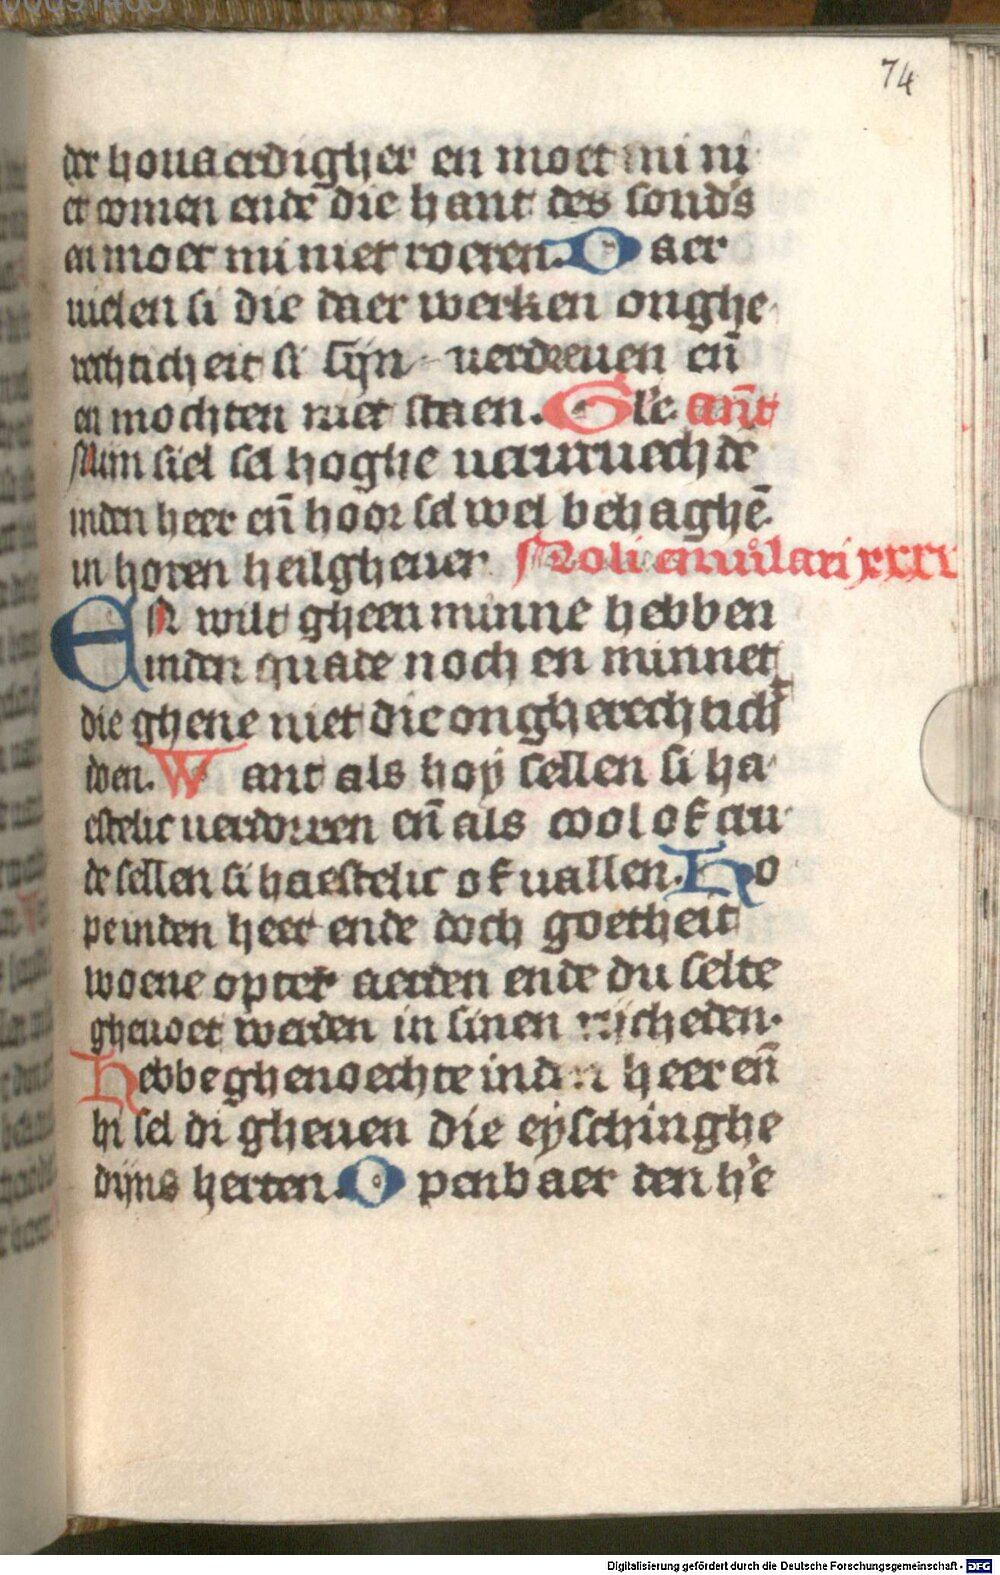 74
der houaerdigher en moet mi ni
et comen ende die hant des sond's
en moet mi niet roeren. Daer
uielen si die daer werken onghe
rechticheit si sijn uerdreuen en̄
en mochten niet staen. Gl'e. an̄t
Min siel sel hoghe ueruruechdē
inden heer en̄ hoor sel wel behaghē
in horen heilgheuer Noli emulari xxxi
En wilt gheen minne hebben
inden quade noch en minnet
die ghene niet die ongherechtich
doen. Want als hoÿ sellen si ha
estelic uerdorren en̄ als cool of cru
de sellen si haestelic of uallen. Ho
pe inden heer ende doch goetheit
woene opter aerden ende du selte
gheuoet werden in sinen rijcheden.
Hebbe ghenoechte inden heer en̄
hi sel di gheuen die eyschinghe
dijns herten. Openbaer den h'e
Digitalisierung gefördert durch die Deutsche Forschungsgemeinschaft - DFG